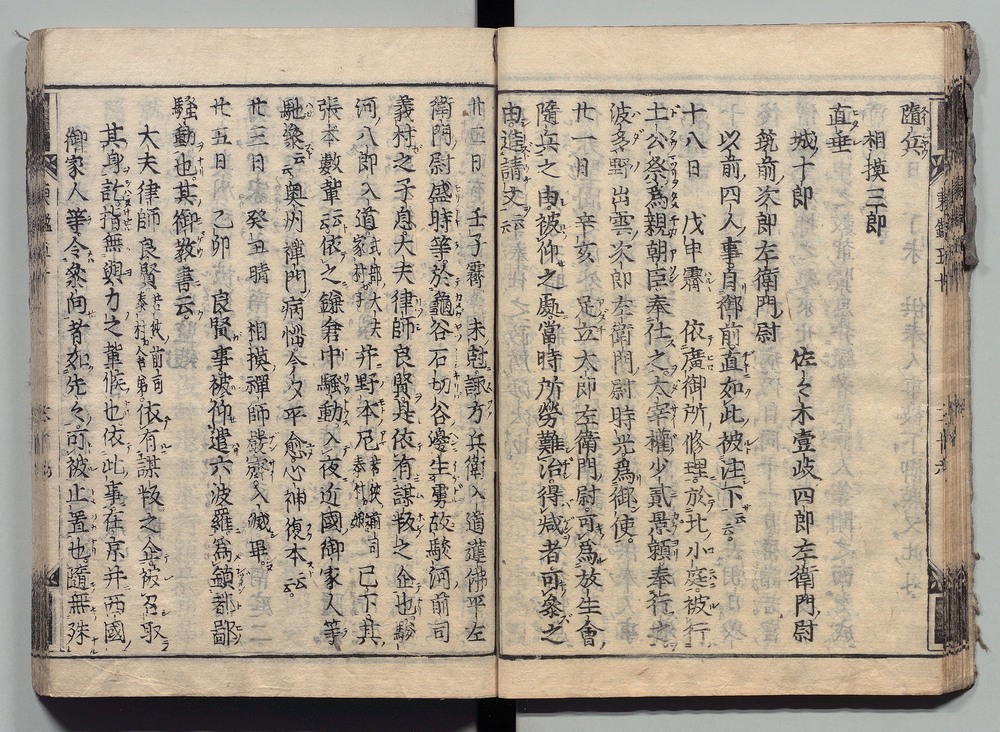 隨兵
相摸三郎
直垂
城十郎 佐々木壹岐四郎左衞門尉
筑前次郎左衞門尉
以前四人事自御前直如此被注下云云
十八日 戊申霽 依廣御所修理於北小庭被行
土公祭爲親朝臣奉仕之太宰權少貳景頼奉行之
波多野出雲次郎左衞門尉時光爲御使
廿一日 辛亥 足立太郎左衞門尉可爲放生會
隨兵之由被仰之處當時所勞難治得减者可參之
由造請文云云
廿二日 壬子霽 未尅諏方兵衞入道蓮佛平左
衞門尉盛時等於龜谷石切谷邊生虜故駿河前司
義村之子息大夫律師良賢是依有謀叛之企也駿
河八郎入道式部大夫家村子并野本尼若狹前司泰村娘已下其
張本數輩云云依之鎌倉中騷動入夜近國御家人等
馳參云云奥州禪門病惱今夕平愈心神復本云云
廿三日 癸丑晴 相摸禪師嚴齋入滅畢
廿五日 乙卯 良賢事被仰遣六波羅爲鎭都鄙
騷動也其御教書云
大夫律師良賢若狹前司泰村舎弟依有謀叛之企被召取
其身訖指無與力之輩候也依此事在京并西國
御家人等令參向者如先々可被止置也隨無殊